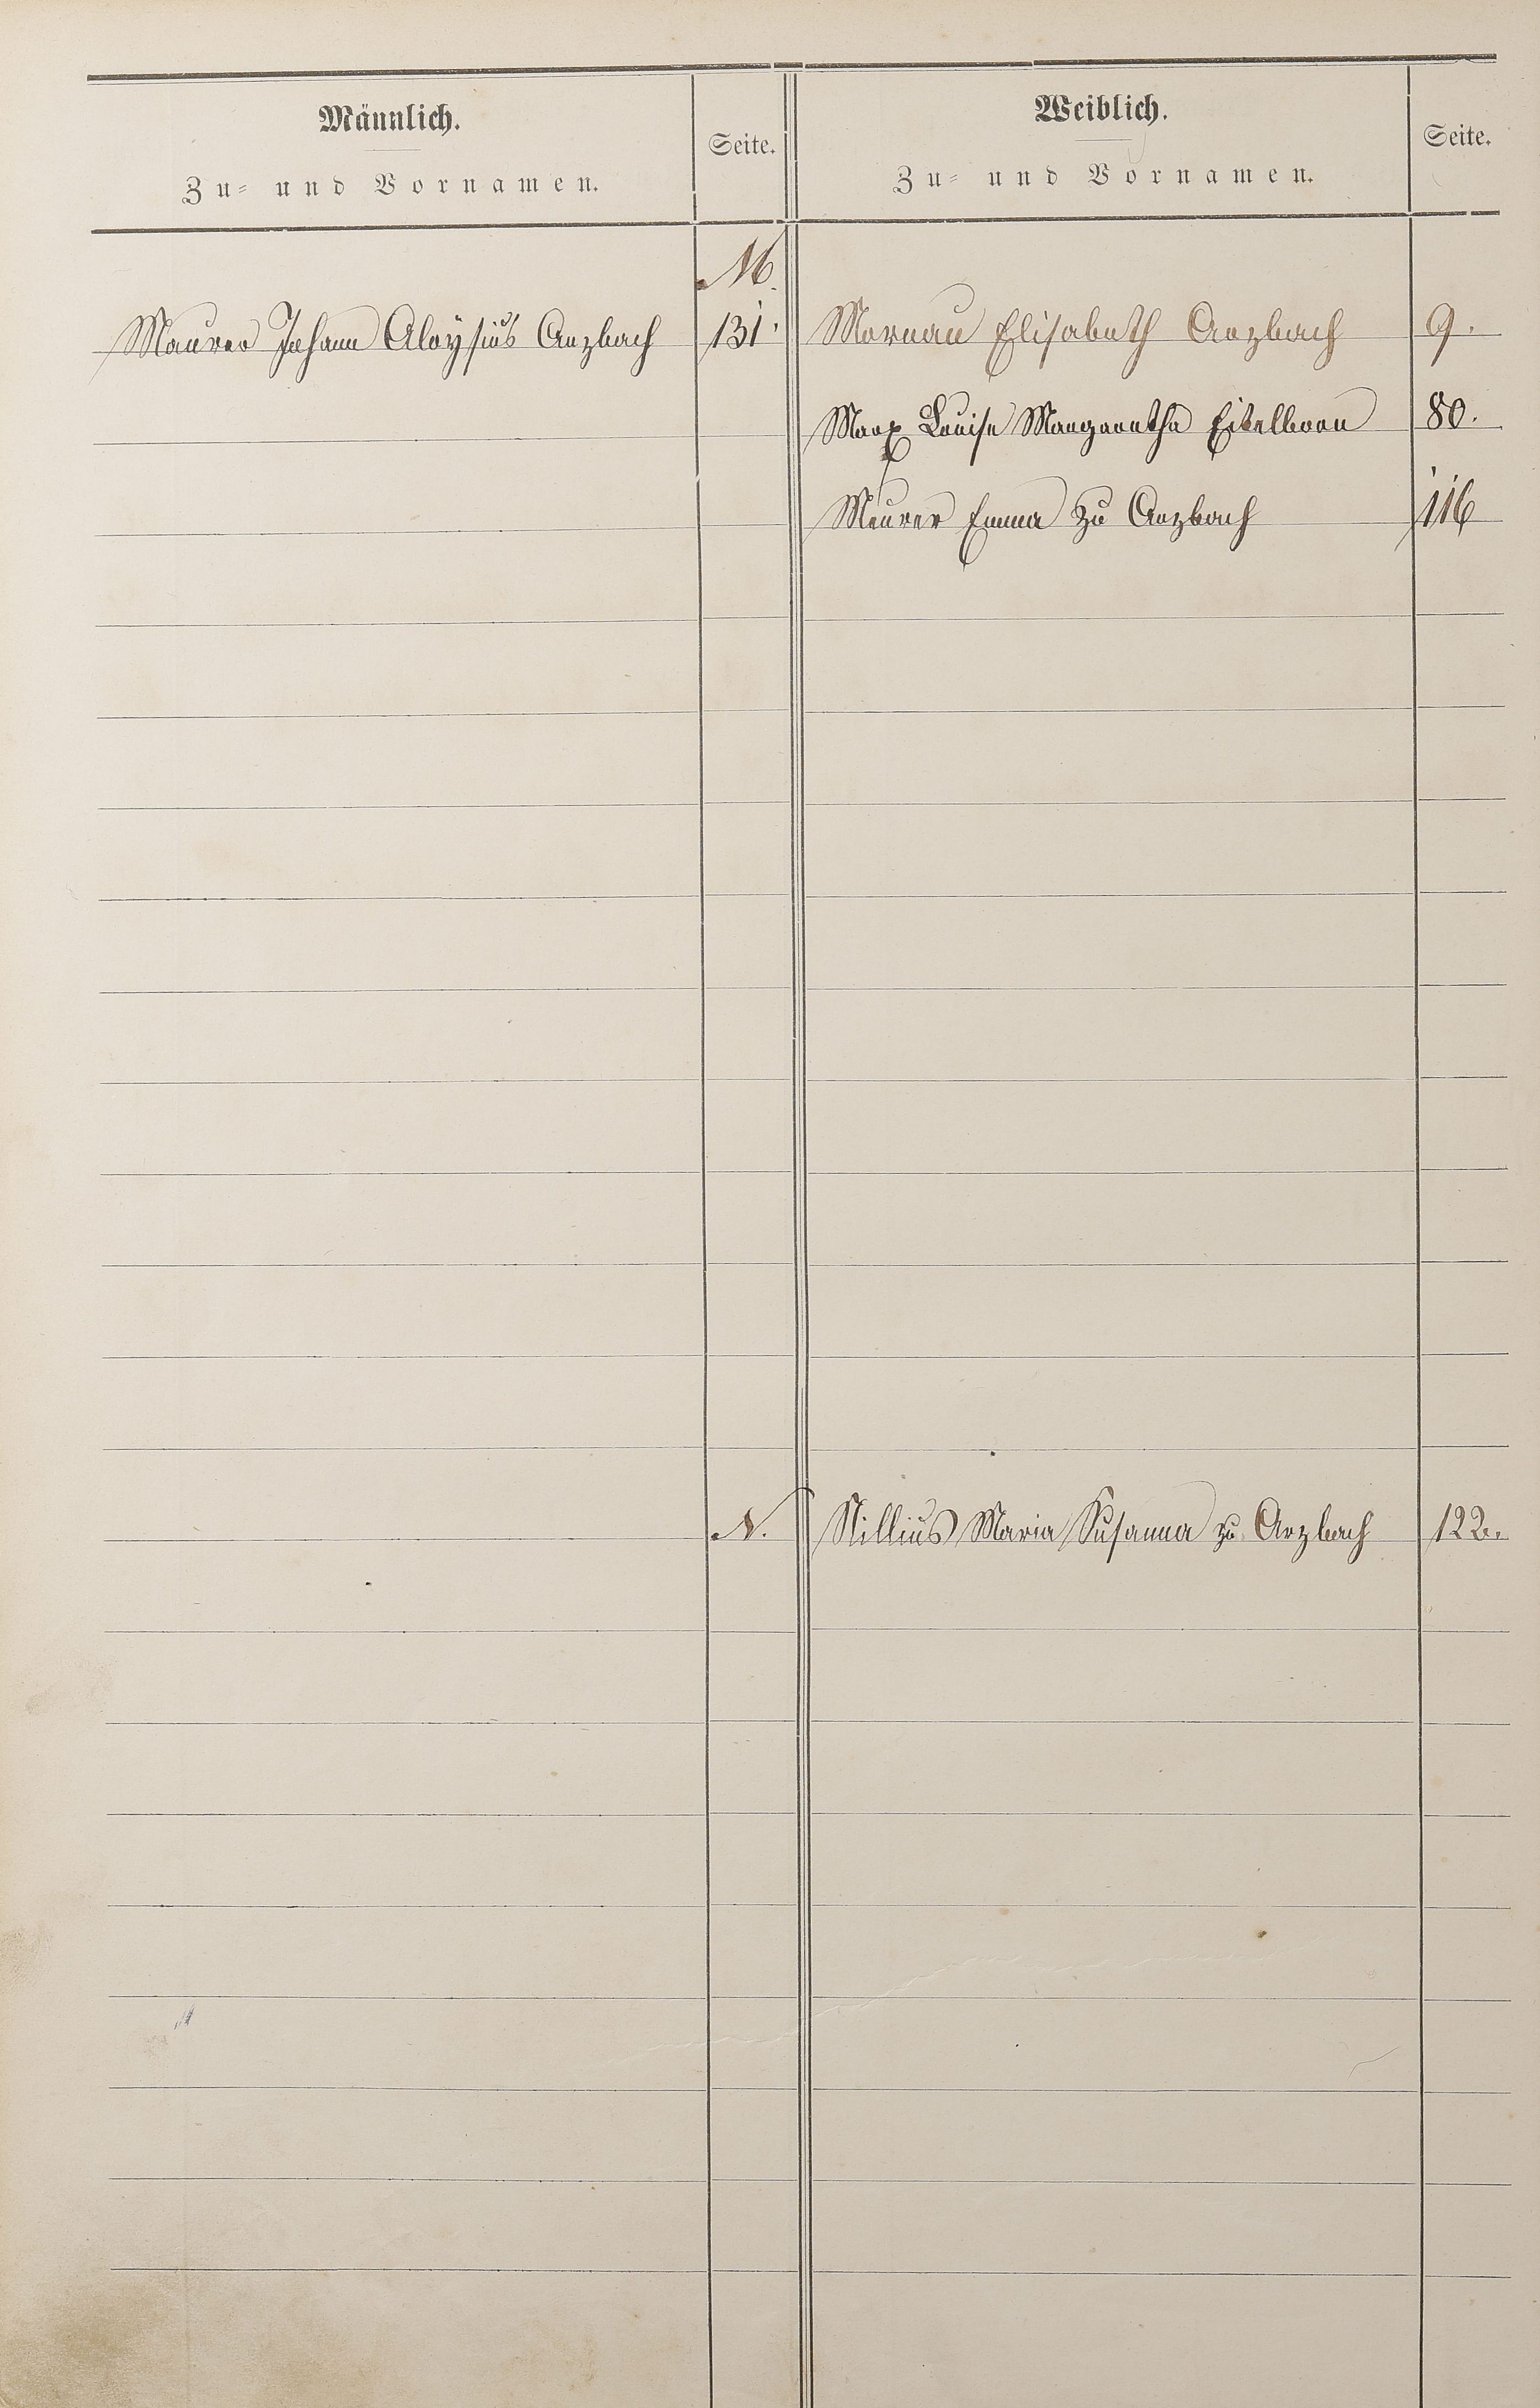 Männlich.
Zu- und Vornamen.
Seite.
Weiblich.
Zu- und Vornamen.
Seite.
M.
Maurer Johann Aloysius Arzbach 131.
Mornau Elisabeth Arzbach 9.
Marx Louise Margaretha Eitelborn 80.
Meurer Emma zu Arzbach 116
N.
Nillius Maria Susanna zu Arzbach 122.